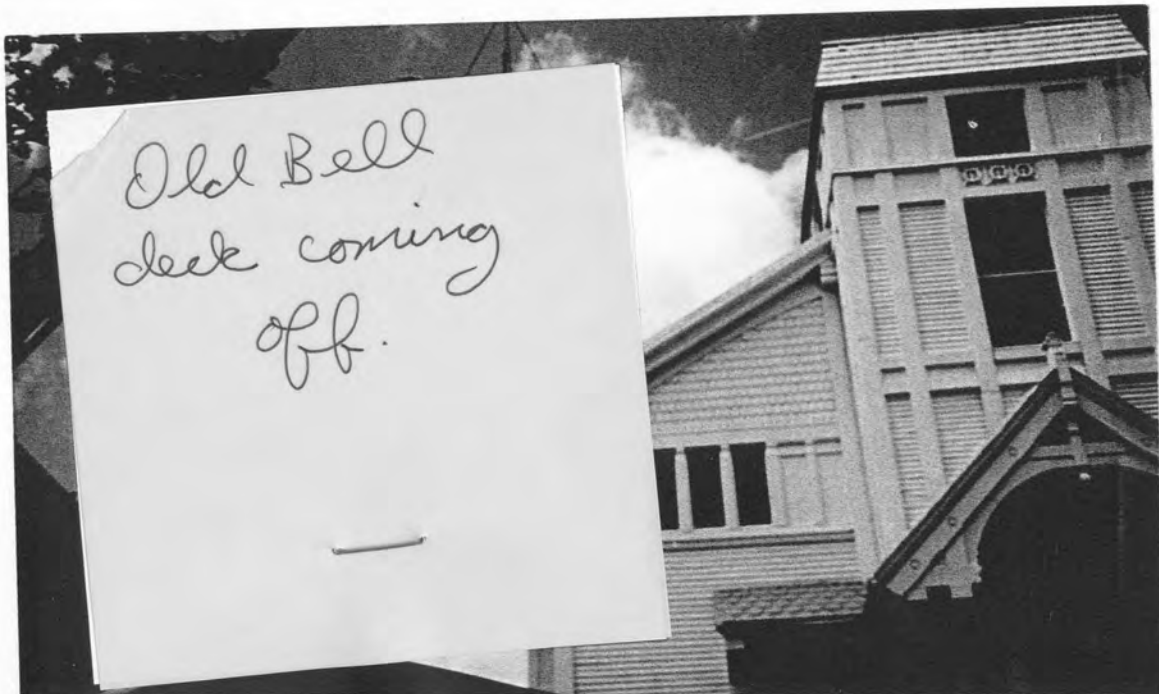 Old Bell
deck coming
off.